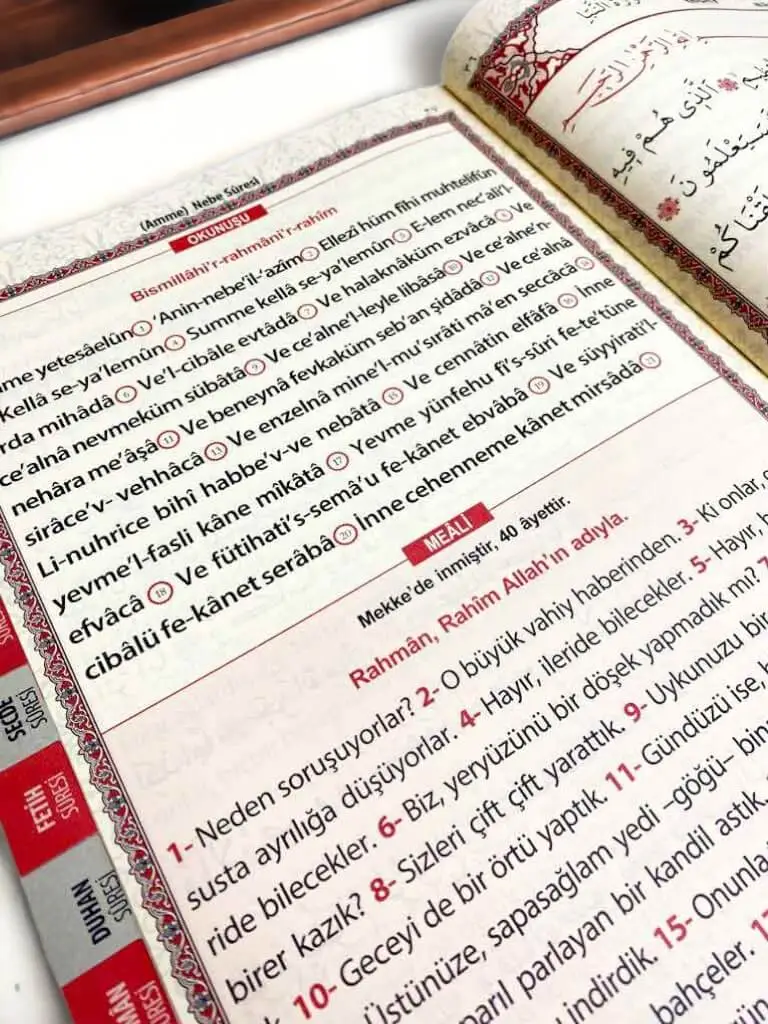 (Amme) Nebe Sûresi
OKUNUŞU
Bismillâhi'r-rahmâni'r-rahîm
yetesâelûn 1 'Anin-nebe'il-'azîm 2 Ellezî hüm fîhi muhtelifûn
Kellâ se-ya'lemûn 4 Summe kellâ se-ya'lemûn 5 E-lem nec'ali'l-
mihâdâ 6 Ve'l-cibâle evtâdâ 7 Ve halaknâküm ezvâcâ Ve
ce'alnâ nevmeküm sübâtâ 9 Ve ce'alne'l-leyle libâsâ 10 Ve ce'alne'n-
nehâra me'âşâ 11 Ve beneynâ fevkaküm seb'an şidâdâ 12 Ve ce'alnâ
sirâce'v- vehhâcâ 13 Ve enzelnâ mine'l-mu'sırâti mâ'en seccâcâ 14
Li-nuhrice bihî habbe'v-ve nebâtâ Ve cennâtin elfâfâ 16 İnne
yevme'l-fasli kâne mîkâtâ 17 Yevme yünfehu fi's-sûri fe-te'tûne
efvâcâ 18 Ve fütihati's-semâ'u fe-kânet ebvâbâ 19 Ve süyyirati'l-
cibâlü fe-kânet serâbâ 20 İnne cehenneme kânet mirsâdâ 21
MEÂLİ
Mekke'de inmiştir, 40 âyettir.
Rahmân, Rahîm Allah'ın adıyla.
1- Neden soruşuyorlar? 2- O büyük vahiy haberinden. 3- Ki onlar,
susta ayrılığa düşüyorlar. 4- Hayır, ileride bilecekler. 5- Hayır,
ride bilecekler. 6- Biz, yeryüzünü bir döşek yapmadık mı?
birer kazık? 8- Sizleri çift çift yarattık. 9- Uykunuzu bir
10- Geceyi de bir örtü yaptık. 11- Gündüzü ise,
Üstünüze, sapasağlam yedi –göğü–
parlayan bir kandil astık.
indirdik. 15- Onunla
bahçeler.
SECDE
SÛRESİ
FETİH
SÛRESİ
DUHAN
SÛRESİ
SÛRESİ
الَّذِى هُمْ فِيهِ
سَيَعْلَمُونَ